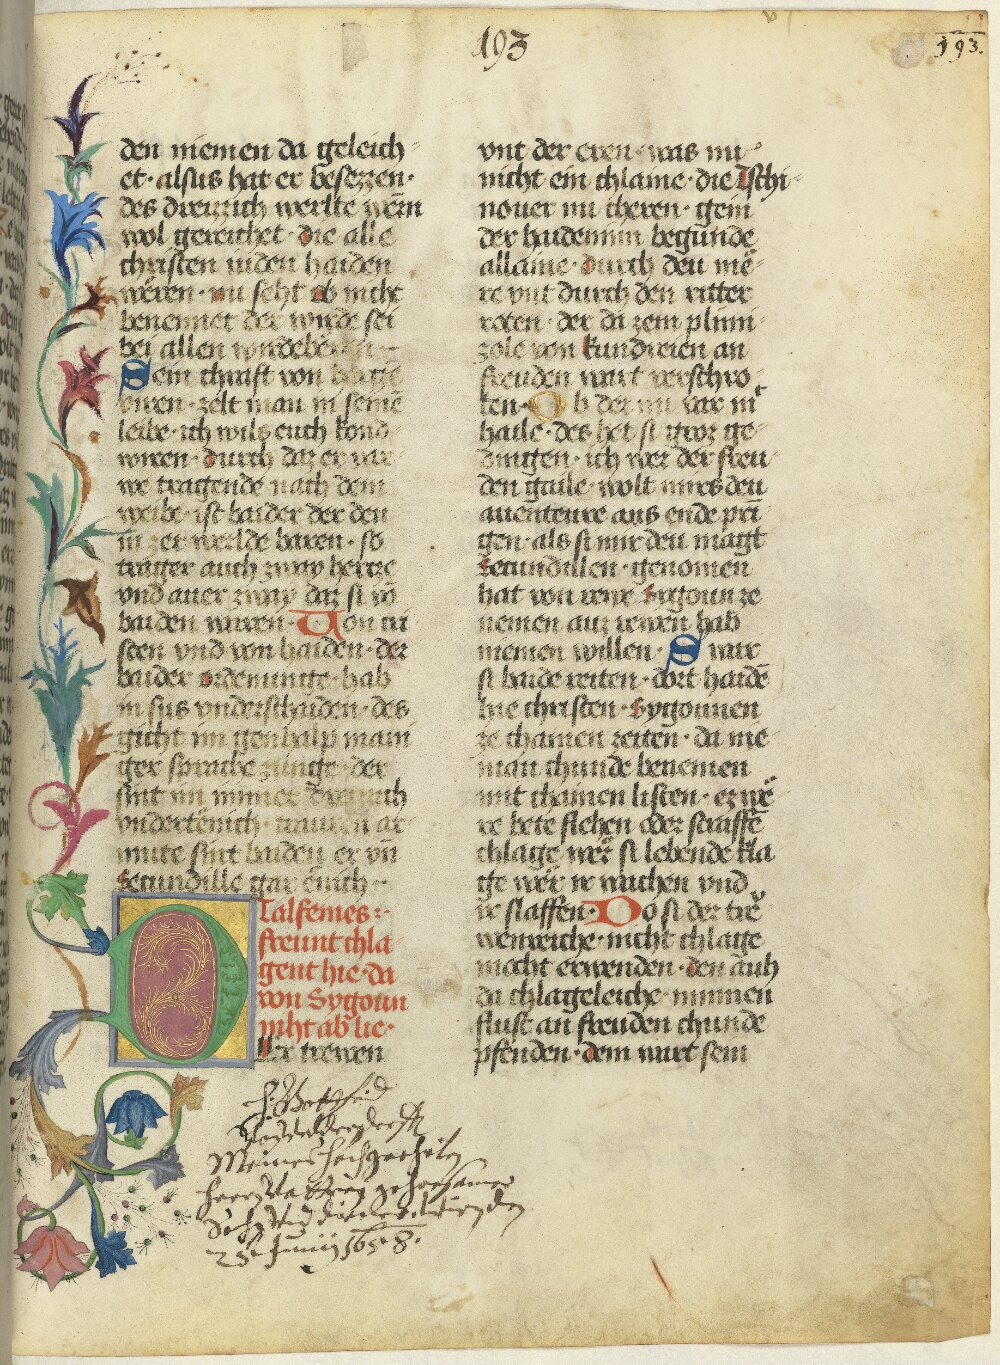 193
193.
den niemen da geleich=
et · alsus hat er besezzen ·
des dreizzich werlte wern
wol gereichet · die alle
christen vnden haiden
wëren · nu seht ob nicht
benennet der wirde sei
bei allen wirdebëren
Sein chraft von
zelt man in seinē
leibe · ich wils euch kond=
wiren · durch daz er var=
we tragende nach dem
weibe · ist baider der den
in zer werlde baren · so
trüger auch zway hertze
vnd auer zway daz si vō
baiden waren · Von cri=
sten vnd von haiden · der
baider ordenunge · hab
in sus vnderschaiden · des
gicht im genhalp mani=
ger sprache zunge · der
sint im immer
vndertënich · trauren ar=
mute sint baiden er vn̄
Secundille gar einich ·
Talfemes :·
freunt chla=
gent hie · da
von Sygoun
niht ab lie ·
Der trewen
vnt der eren · was nu
nicht ein chlaine · die Tschi=
nouer nu cheren · gein
der haideninn begunde
allaine · durch den mē=
re vnt durch den ritter
roten · der da zem plimi=
zole von kundreien an
freuden wart verschro=
ten · Ob der nu var in
haile · des het si groz ge=
dingen · ich wer der freu=
den gaile · wolt mirs deu
auenteure aus ende prī=
gen · als si mir deu magt
Secundillen · genomen
hat von irre Sygoun ze
nemen auz rewen hab
niemen willen · Swar
si baide reiten · dort haidē
hie christen · Sygounen
ze chamen zeiten · da nie=
man chunde benemen
mit chainen listen · ez wē=
re bete flehen oder straffē
chlage wer si lebende kla=
ge wër ir wachen vnd
ir slaffen · Do si der tre=
wenreiche · nicht chlage
mocht erwenden · den auch
da chlageleiche · minnen
flust an freuden chunde
pfenden · dem wart sein
Meines
herrn gehorsamer
25 Junij 1658.